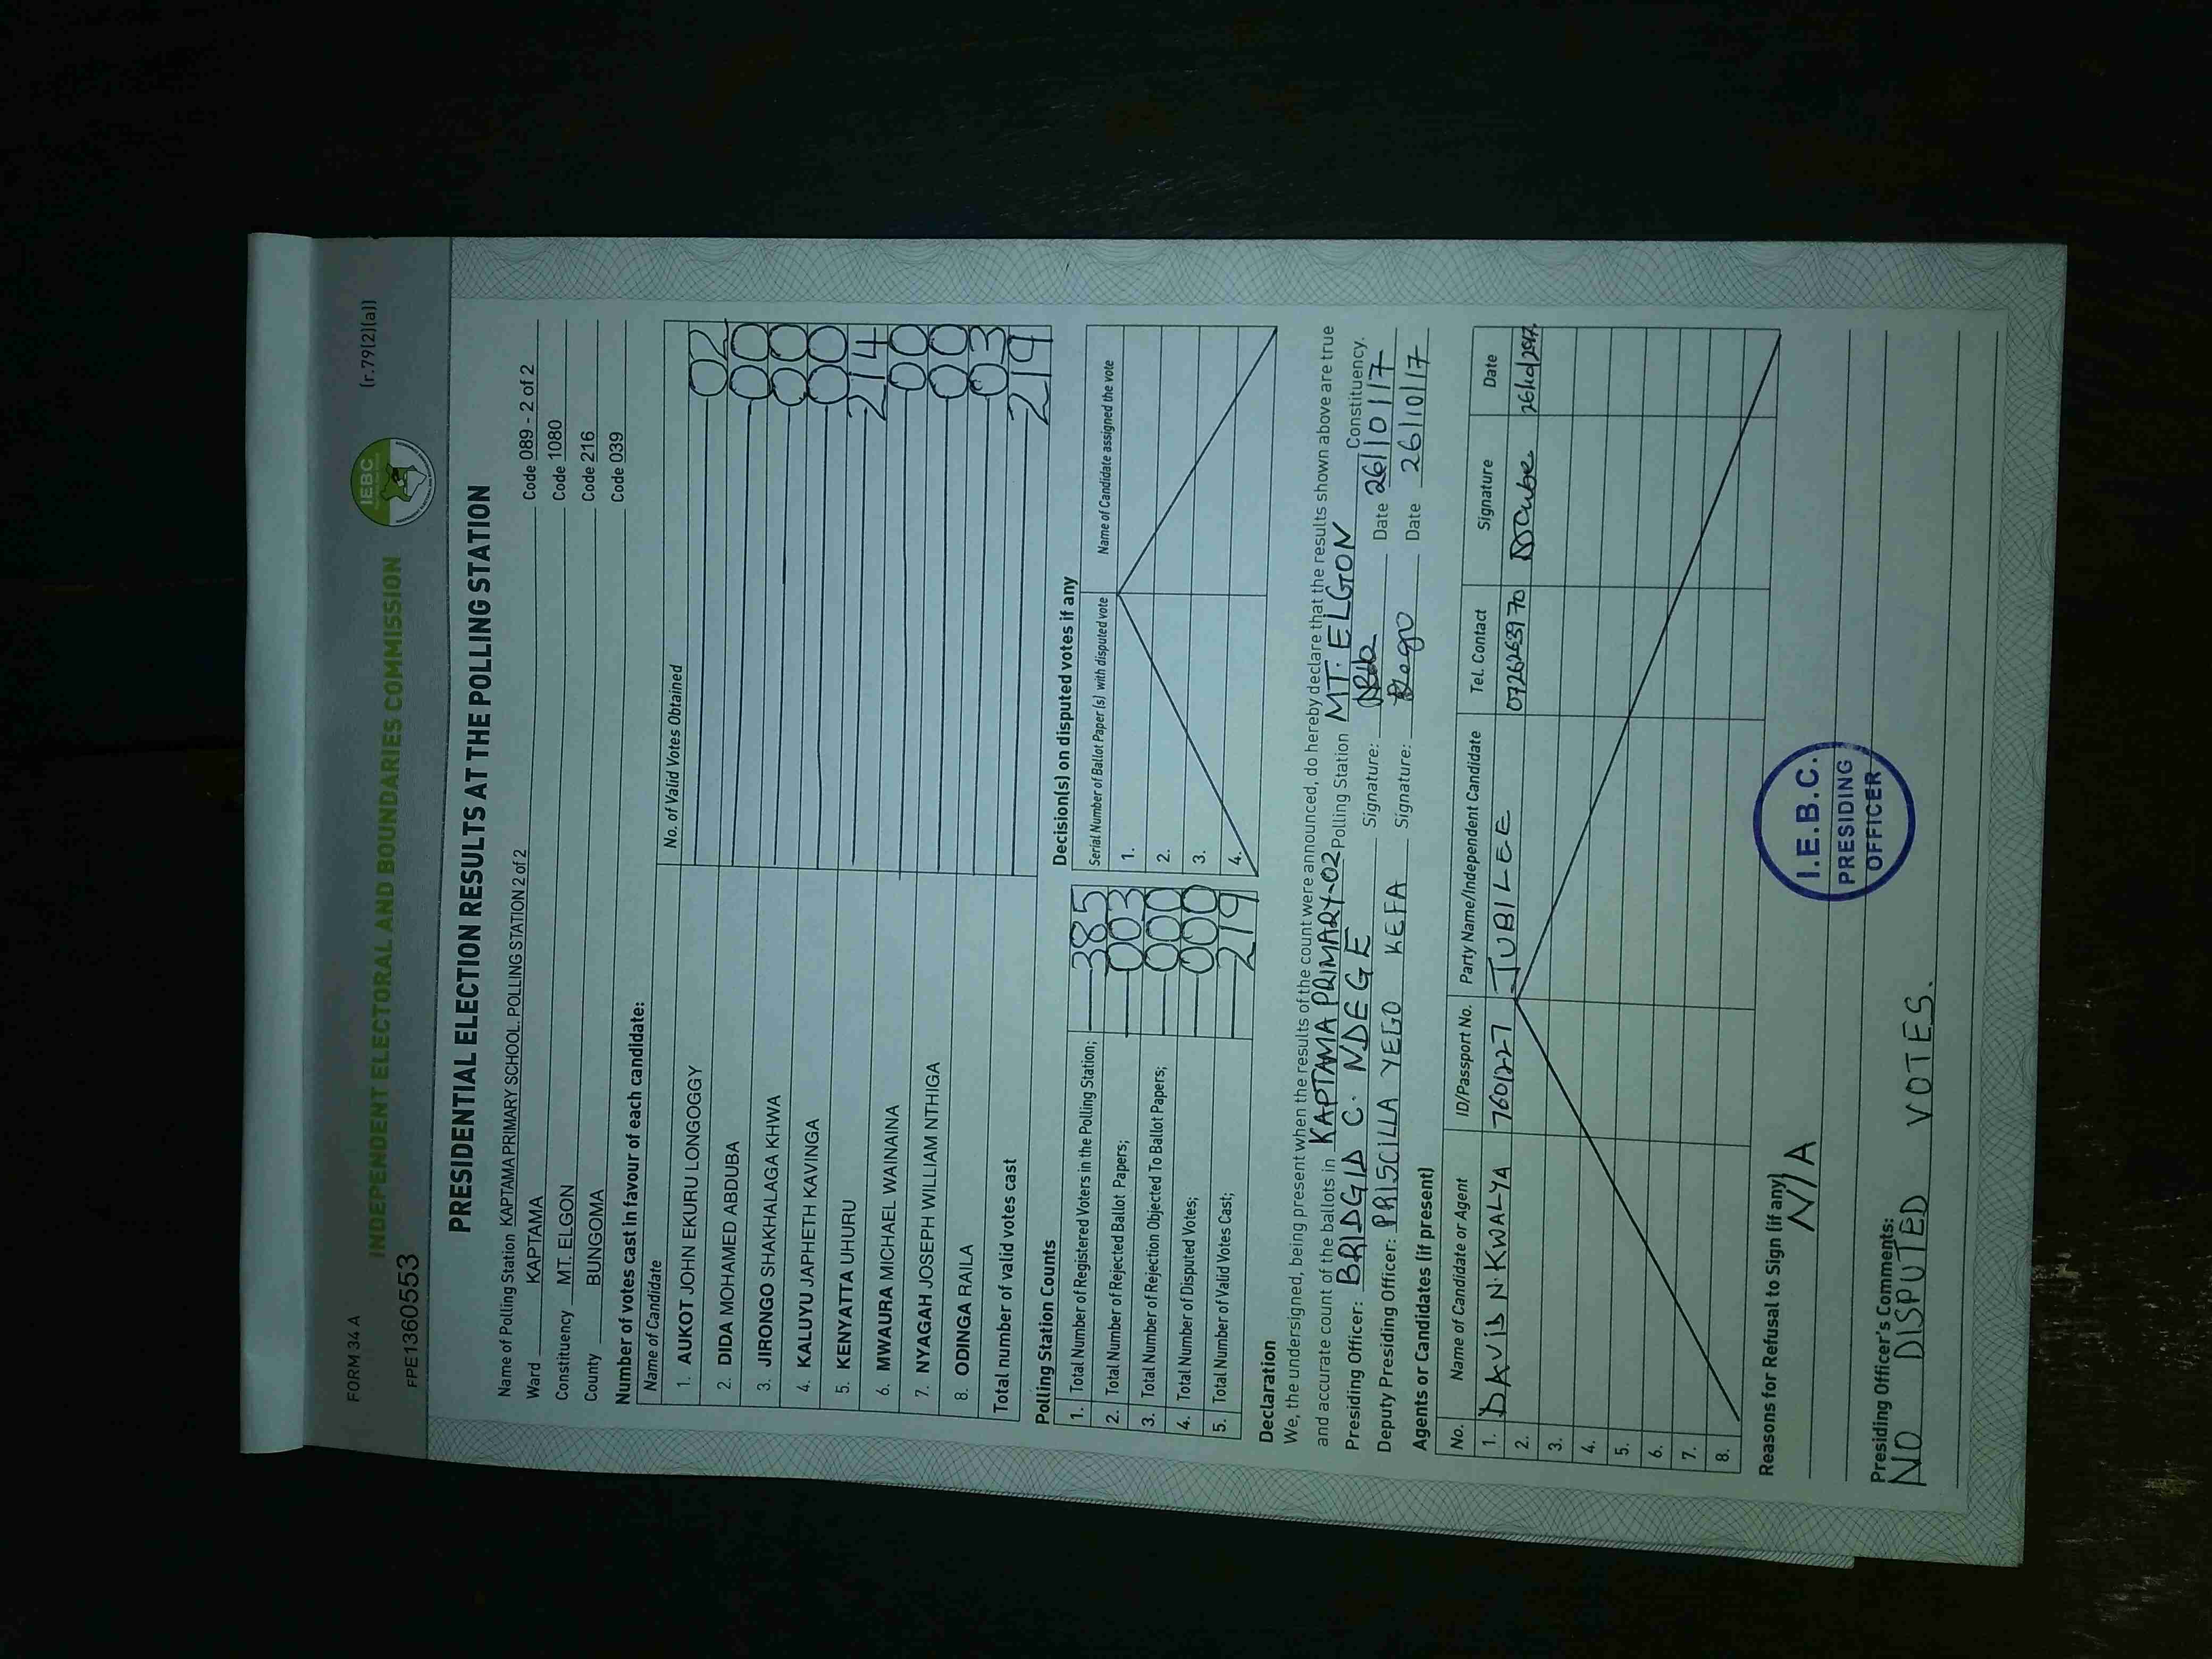 FORM 34 A
(r.79(2)(a))
INDEPENDENT ELECTORAL AND BOUNDARIES COMMISSION
IEBC
FPE1360553
PRESIDENTIAL ELECTION RESULTS AT THE POLLING STATION
Name of Polling Station KAPTAMA PRIMARY SCHOOL. POLLING STATION 2 of 2 Code 089 - 2 of 2
Ward KAPTAMA Code 1080
Constituency MT. ELGON Code 216
County BUNGOMA Code 039
Number of votes cast in favour of each candidate:
Name of Candidate No. of Valid Votes Obtained
1. AUKOT JOHN EKURU LONGOGGY 02
2. DIDA MOHAMED ABDUBA 00
3. JIRONGO SHAKHALAGA KHWA 00
4. KALUYU JAPHETH KAVINGA 00
5. KENYATTA UHURU 214
6. MWAURA MICHAEL WAINAINA 00
7. NYAGAH JOSEPH WILLIAM NTHIGA 00
8. ODINGA RAILA 03
Total number of valid votes cast 219
Polling Station Counts
1. Total Number of Registered Voters in the Polling Station; 385
2. Total Number of Rejected Ballot Papers; 003
3. Total Number of Rejection Objected To Ballot Papers; 000
4. Total Number of Disputed Votes; 000
5. Total Number of Valid Votes Cast; 219
Decision(s) on disputed votes if any
Serial Number of Ballot Paper (s) with disputed vote Name of Candidate assigned the vote
1.
2.
3.
4.
Declaration
We, the undersigned, being present when the results of the count were announced, do hereby declare that the results shown above are true
and accurate count of the ballots in KAPTAMA PRIMARY-02 Polling Station MT. ELGON Constituency.
Presiding Officer: BRIDGID C. NDEGE Signature: Date 26/10/17
Deputy Presiding Officer: PRISCILLA YEGO KEFA Signature: Date 26/10/17
Agents or Candidates (if present)
No. Name of Candidate or Agent ID/Passport No. Party Name/Independent Candidate Tel. Contact Signature Date
1. DAVID N. KWALYA 7601227 JUBILEE 0726263970 26/10/2017
2.
3.
4.
5.
6.
7.
8.
Reasons for Refusal to Sign (if any)
N/A
I.E.B.C.
PRESIDING
OFFICER
Presiding Officer's Comments:
NO DISPUTED VOTES.